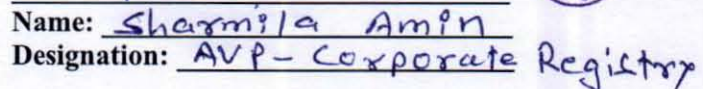 Name: Sharmila Amin
Designation: AVP - Corporate Registry